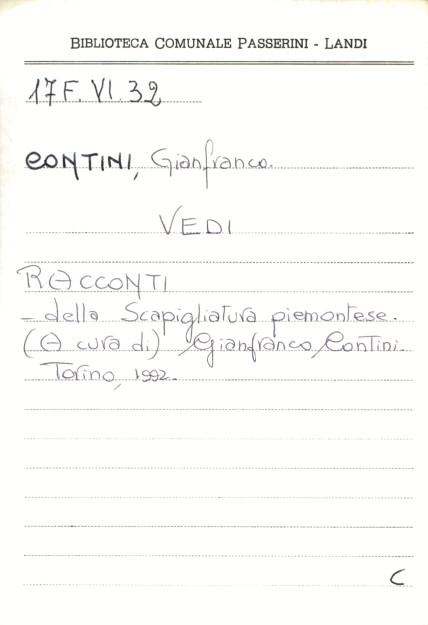 BIBLIOTECA COMUNALE PASSERINI - LANDI
17F.VI.32
CONTINI, Gianfranco.
VEDI
RACCONTI
- della Scapigliatura piemontese.
(A cura di) Gianfranco Contini.
Torino, 1992.
C